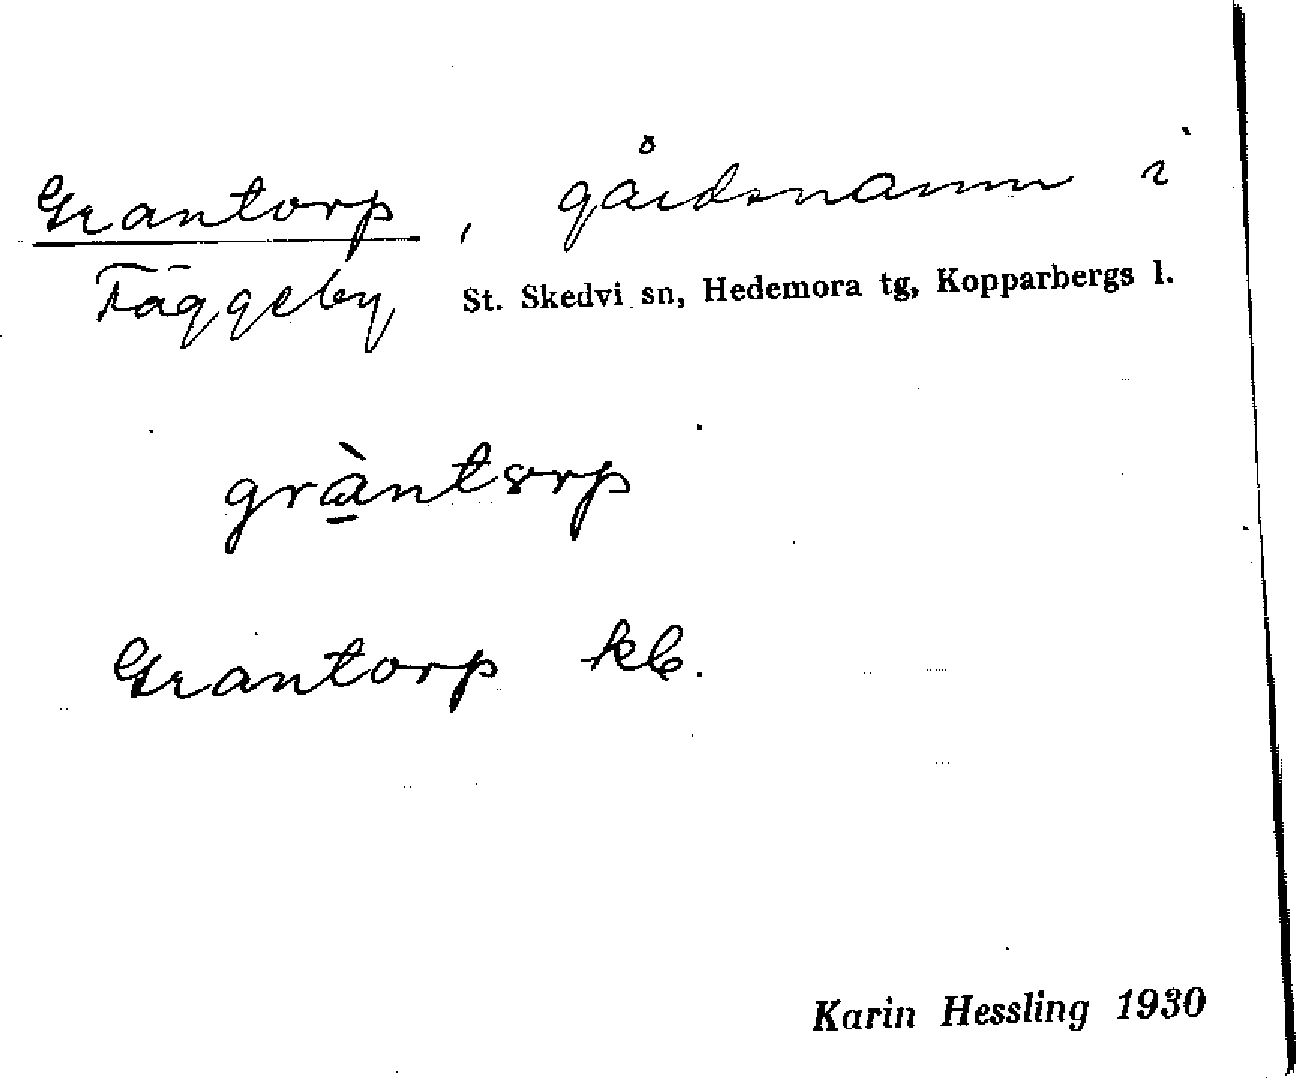 Grantorp, gårdsnamn i
Fäggeby, St. Skedvi sn, Hedemora tg, Kopparbergs l.
grà̱ntorp
Grantorp kb.
Karin Hessling 1930